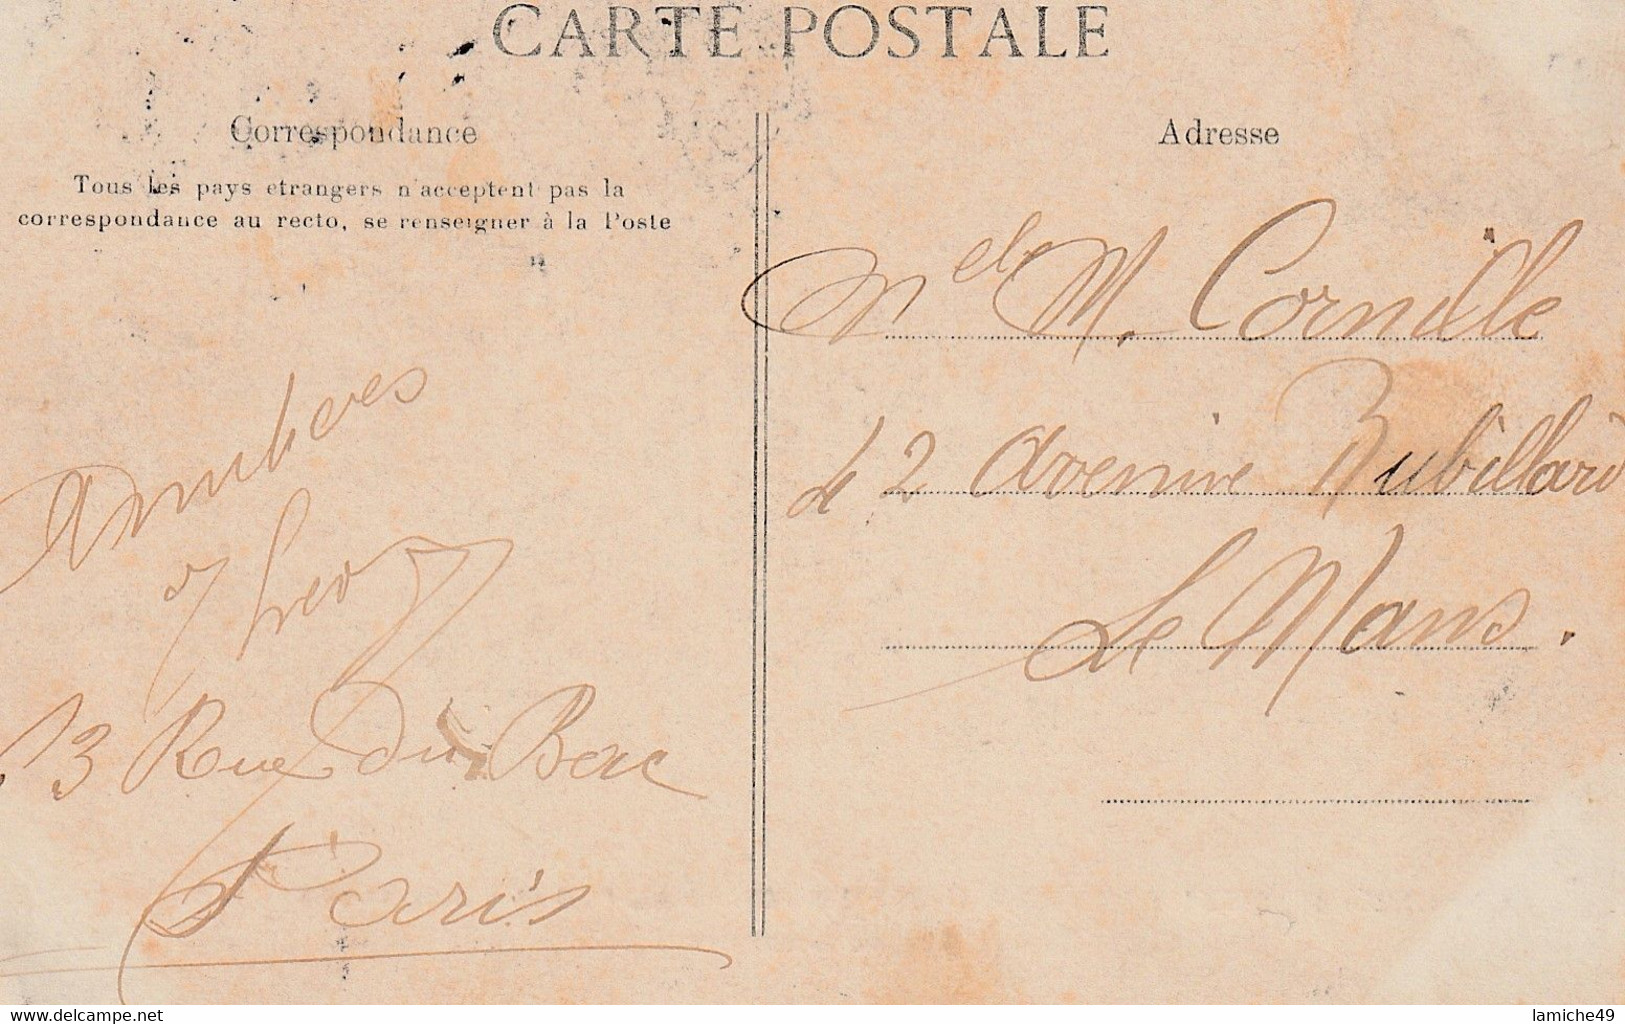 CARTE POSTALE
Correspondance
Tous les pays etrangers n'acceptent pas la
correspondance au recto, se renseigner à la Poste
Adresse
Mel M. Cornille
42 Avenue Bubillard
Le Mans.
13 Rue Du Bac
Paris
www.delcampe.net
lamiche49